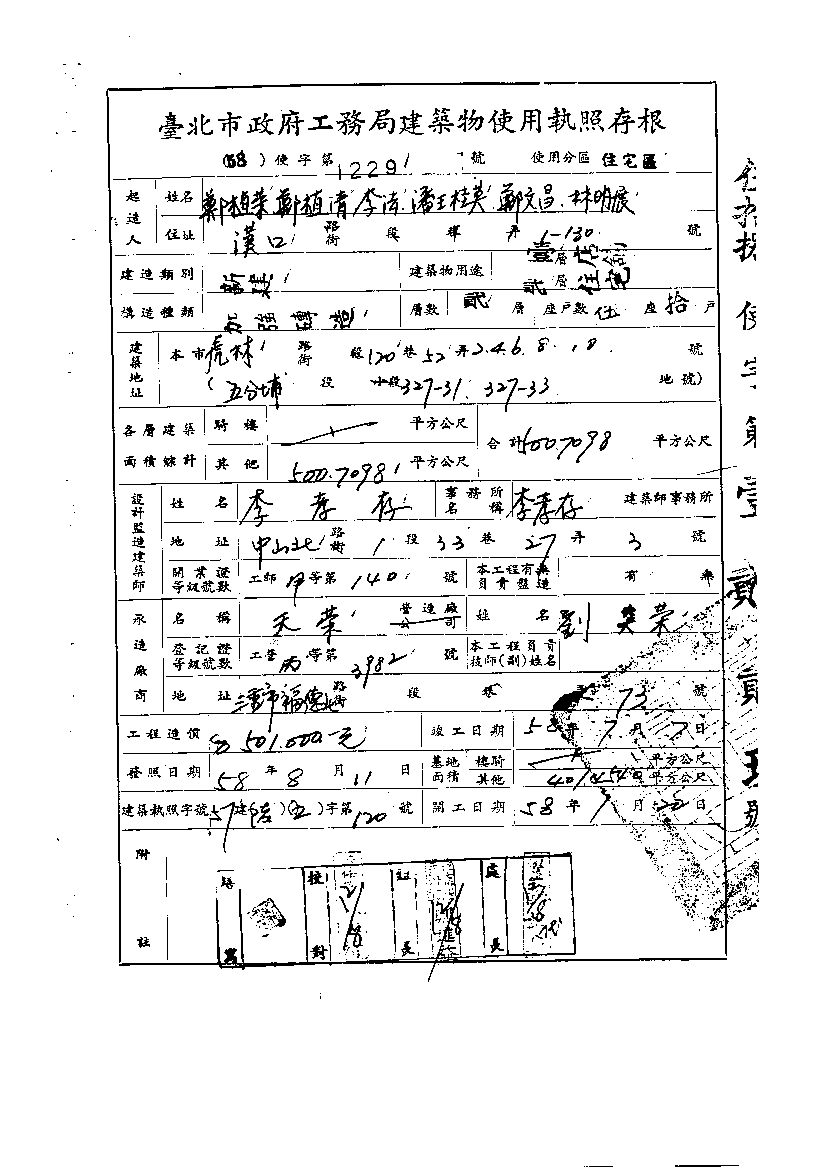 臺北市政府工務局建築物使用執照存根
(58)使字第1229號 使用分區 住宅區
起造人 姓名 鄭植榮 鄭植清 李 潘王桂英 鄭文昌 林明展
住址 漢口 路街 段 巷 弄 1-130 號
建造類別 新建 建築物用途 壹層店舖 貳層住宅
構造種類 加強磚造 層數 貳 層 座戶數 伍 座 拾 戶
建築地址 本市 虎林 路街 段 120 巷 52 弄 2.4.6.8.18 號
(五分埔 段 小段 327-31. 327-33 地號)
各層建築面積總計 騎樓 平方公尺 合計 500.7098 平方公尺
其他 500.7098 平方公尺
設計監造建築師 姓名 李存 事務所名稱 李存 建築師事務所
地址 中山北 路街 1 段 33 巷 27 弄 3 號
開業證等級號數 工師 甲 等第 140 號 本工程有無負責監造 有 無
承造廠商 名稱 天榮 營造廠公司 姓名 劉榮
登記證等級號數 工登 丙 等第 3982 號 本工程負責技師(副)姓名
地址 三重市福德北 路街 段 巷 73 號
工程造價 501.000-元 竣工日期 58年7月7日
發照日期 58年8月11日 基地面積 騎樓 平方公尺
其他 平方公尺
建築執照字號 57建()(五)字第120號 開工日期 58年月日
附註
繕寫 校對 組長 處長
使字第壹貳貳玖號